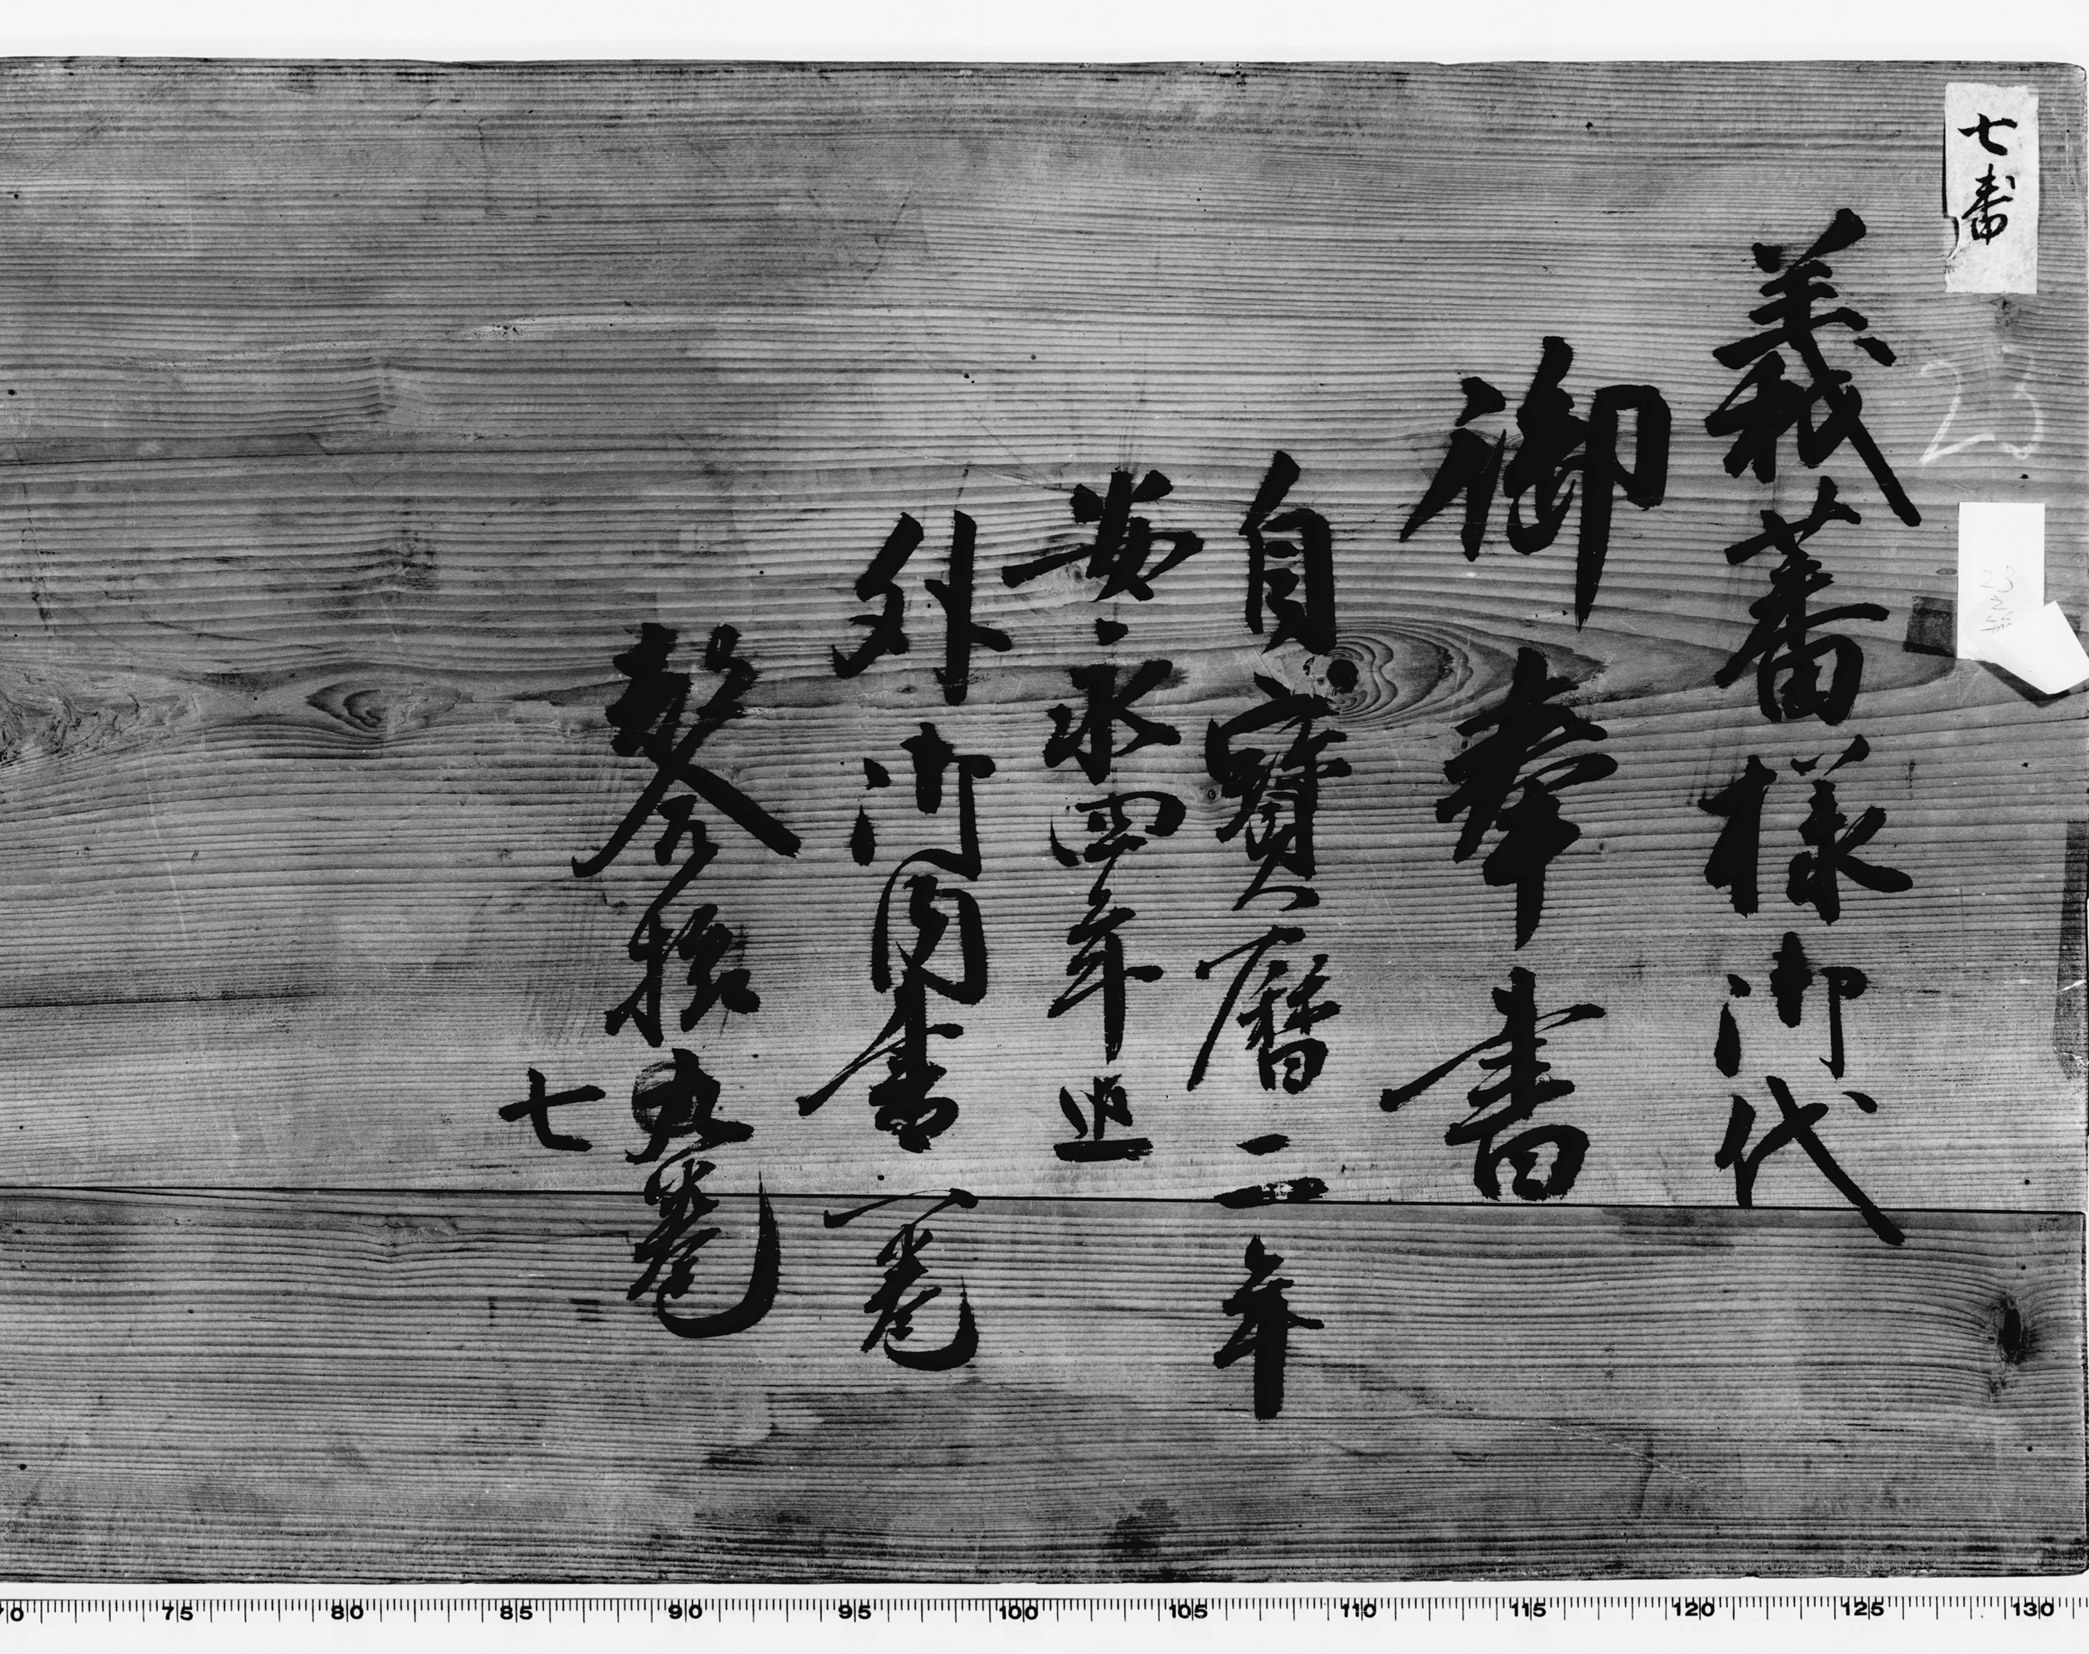 七番
義蕃様御代
御奉書
自寳暦二年
安永四年迄
外御内書一巻
拾九巻
七
23
75 80 85 90 95 100 105 110 115 120 125 130